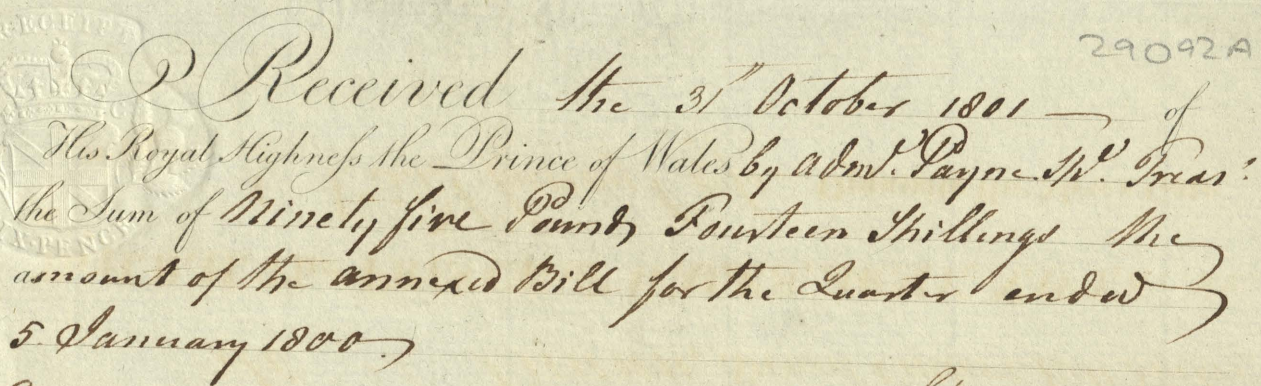 29092A
Received the 31st October 1801 — of
His Royal Highneſs the Prince of Wales by Adml. Payne Treasr.
the Sum of Ninety five Pounds Fourteen Shillings the
amount of the annexed Bill for the Quarter ended
5 January 1800.
RECEIPT
PENCE